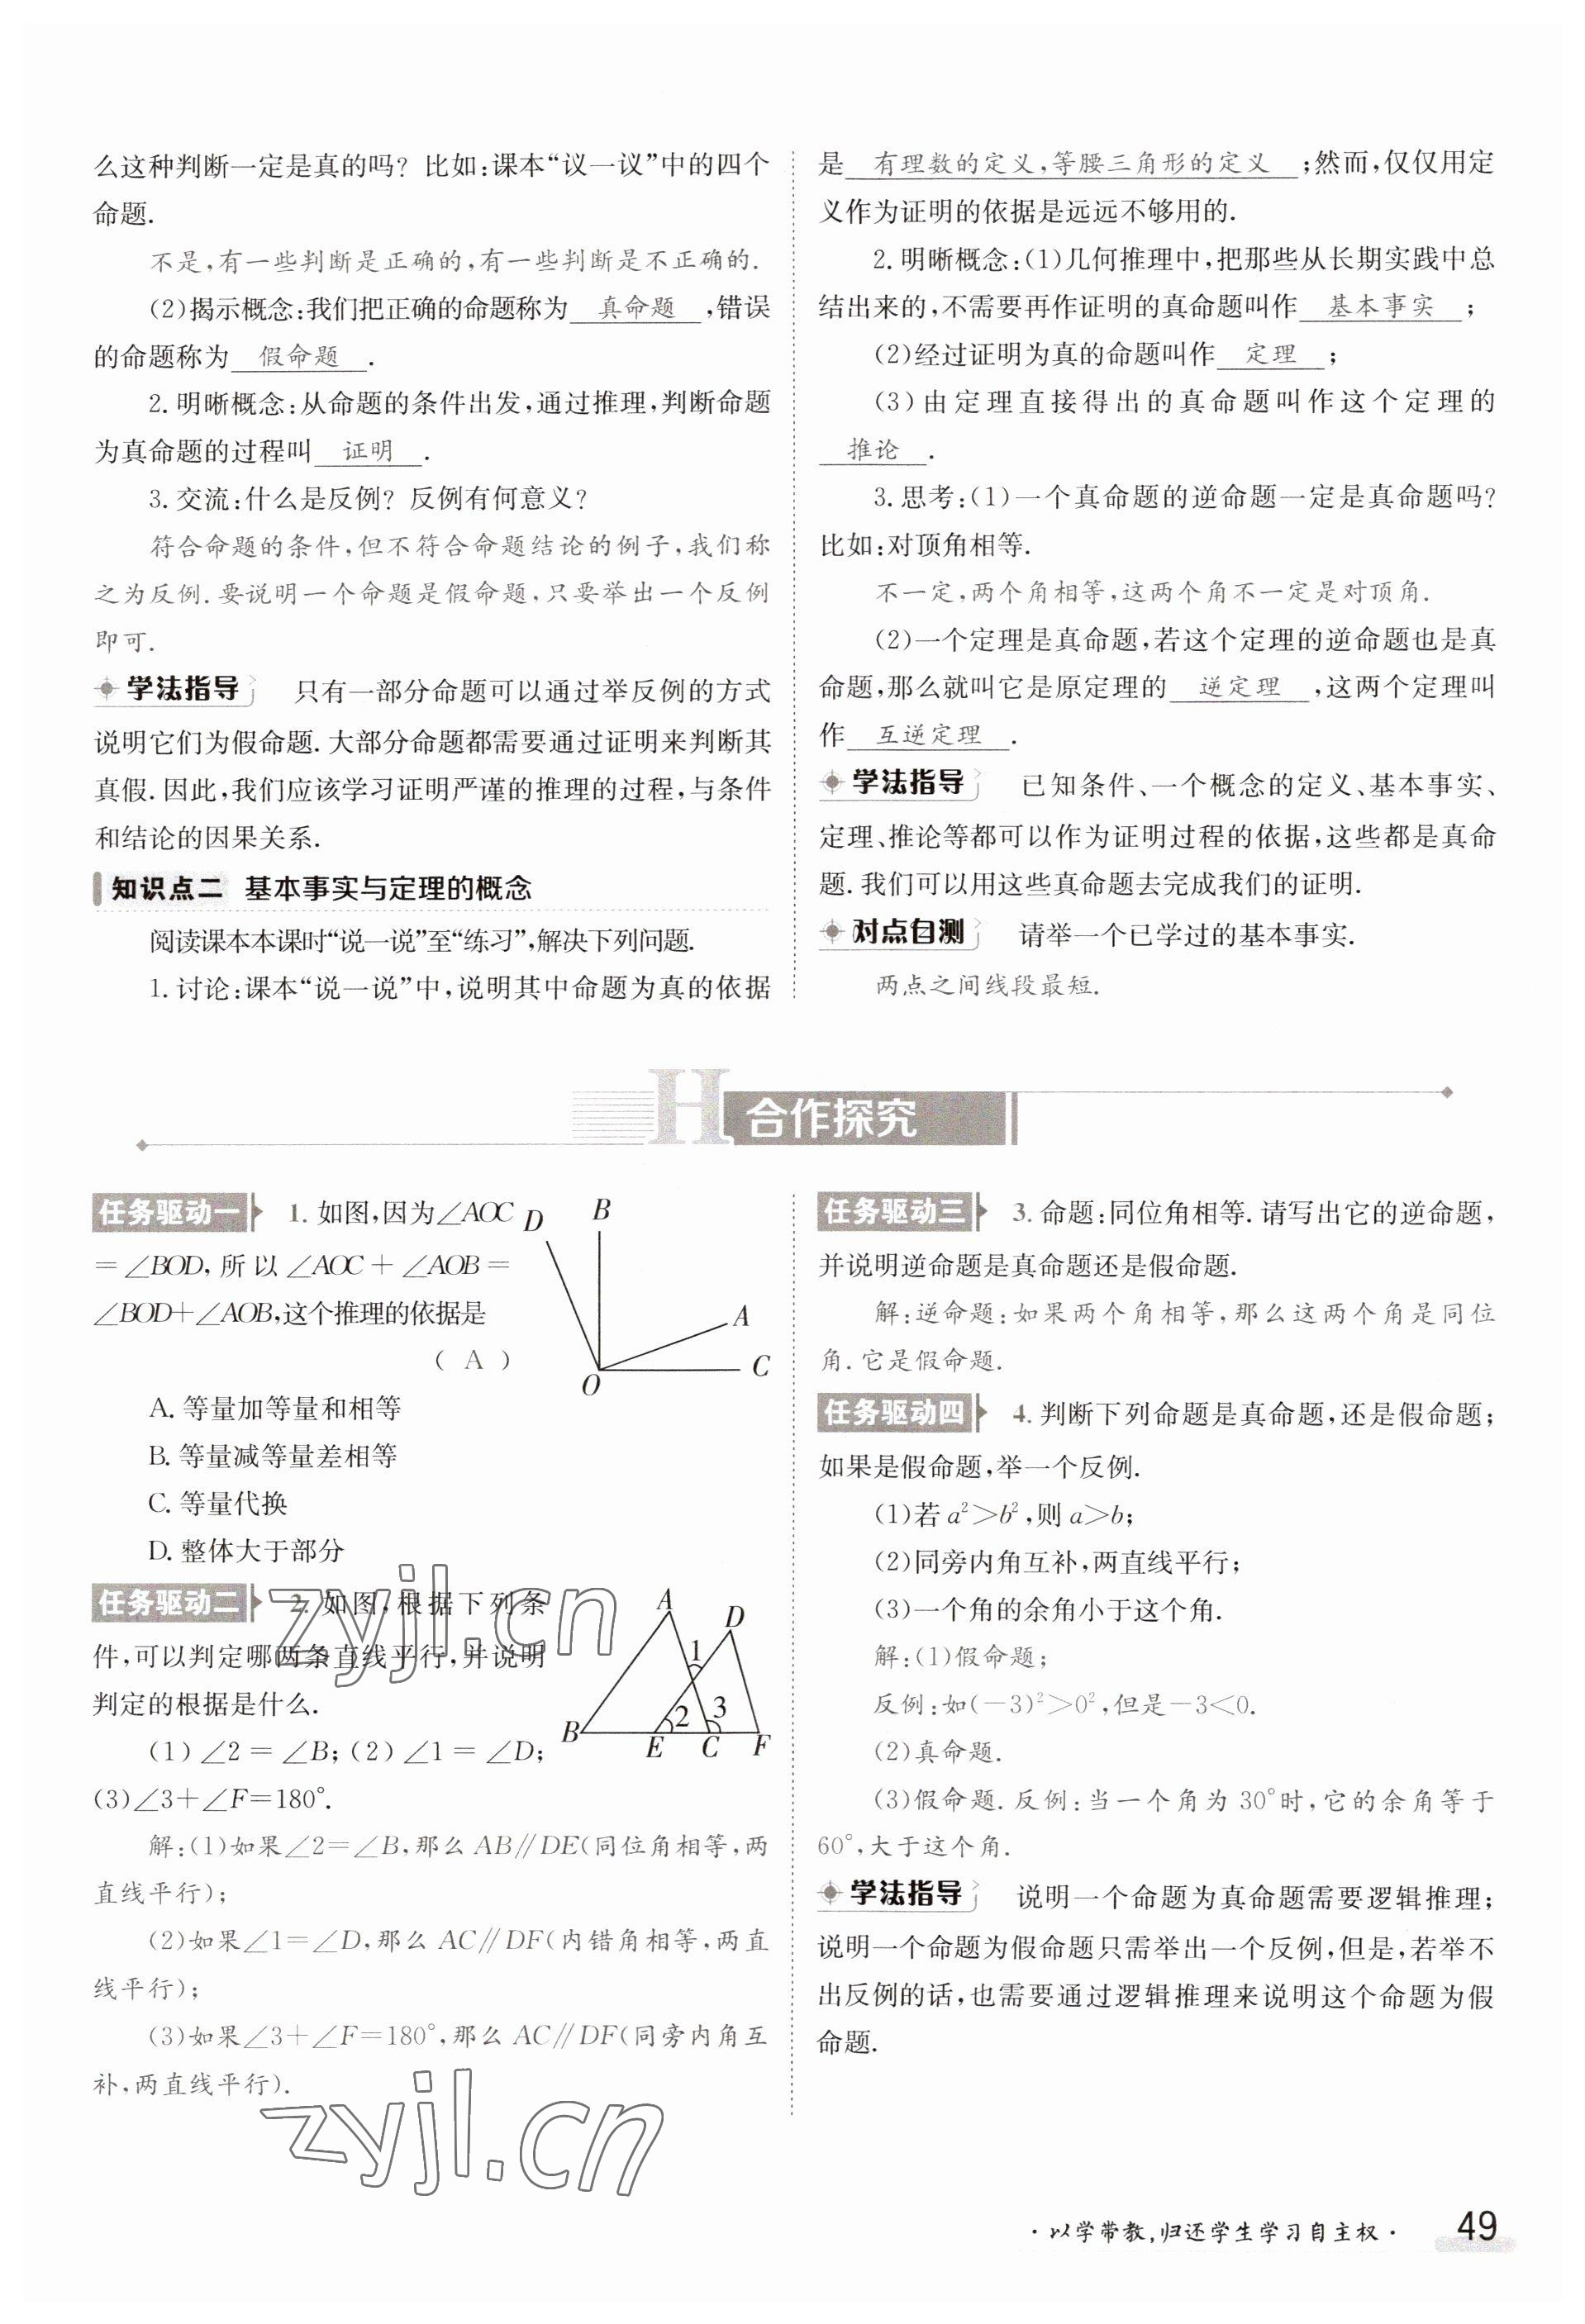 么这种判断一定是真的吗？比如：课本“议一议”中的四个
命题．
不是，有一些判断是正确的，有一些判断是不正确的．
(2)揭示概念：我们把正确的命题称为 真命题 ，错误
的命题称为 假命题 ．
2. 明晰概念：从命题的条件出发，通过推理，判断命题
为真命题的过程叫 证明 ．
3. 交流：什么是反例？反例有何意义？
符合命题的条件，但不符合命题结论的例子，我们称
之为反例．要说明一个命题是假命题，只要举出一个反例
即可．
学法指导 只有一部分命题可以通过举反例的方式
说明它们为假命题．大部分命题都需要通过证明来判断其
真假．因此，我们应该学习证明严谨的推理的过程，与条件
和结论的因果关系．
知识点二 基本事实与定理的概念
阅读课本本课时“说一说”至“练习”，解决下列问题．
1. 讨论：课本“说一说”中，说明其中命题为真的依据
是 有理数的定义，等腰三角形的定义 ；然而，仅仅用定
义作为证明的依据是远远不够用的．
2. 明晰概念：(1)几何推理中，把那些从长期实践中总
结出来的，不需要再作证明的真命题叫作 基本事实 ；
(2)经过证明为真的命题叫作 定理 ；
(3)由定理直接得出的真命题叫作这个定理的
推论 ．
3. 思考：(1)一个真命题的逆命题一定是真命题吗？
比如：对顶角相等．
不一定，两个角相等，这两个角不一定是对顶角．
(2)一个定理是真命题，若这个定理的逆命题也是真
命题，那么就叫它是原定理的 逆定理 ，这两个定理叫
作 互逆定理 ．
学法指导 已知条件、一个概念的定义、基本事实、
定理、推论等都可以作为证明过程的依据，这些都是真命
题．我们可以用这些真命题去完成我们的证明．
对点自测 请举一个已学过的基本事实．
两点之间线段最短．
H 合作探究
任务驱动一 1. 如图，因为∠AOC
=∠BOD，所以∠AOC+∠AOB=
∠BOD+∠AOB，这个推理的依据是
( A )
D B A C O
A. 等量加等量和相等
B. 等量减等量差相等
C. 等量代换
D. 整体大于部分
任务驱动二 2. 如图，根据下列条
件，可以判定哪两条直线平行，并说明
判定的根据是什么．
(1)∠2=∠B；(2)∠1=∠D；
(3)∠3+∠F=180°．
A D 1 2 3 B E C F
解：(1)如果∠2=∠B，那么AB∥DE(同位角相等，两
直线平行)；
(2)如果∠1=∠D，那么AC∥DF(内错角相等，两直
线平行)；
(3)如果∠3+∠F=180°，那么AC∥DF(同旁内角互
补，两直线平行)．
任务驱动三 3. 命题：同位角相等．请写出它的逆命题，
并说明逆命题是真命题还是假命题．
解：逆命题：如果两个角相等，那么这两个角是同位
角．它是假命题．
任务驱动四 4. 判断下列命题是真命题，还是假命题；
如果是假命题，举一个反例．
(1)若a²>b²，则a>b；
(2)同旁内角互补，两直线平行；
(3)一个角的余角小于这个角．
解：(1)假命题；
反例：如(－3)²>0²，但是－3<0．
(2)真命题．
(3)假命题．反例：当一个角为30°时，它的余角等于
60°，大于这个角．
学法指导 说明一个命题为真命题需要逻辑推理；
说明一个命题为假命题只需举出一个反例，但是，若举不
出反例的话，也需要通过逻辑推理来说明这个命题为假
命题．
zyjl.cn
zyjl.cn
·以学带教，归还学生学习自主权· 49